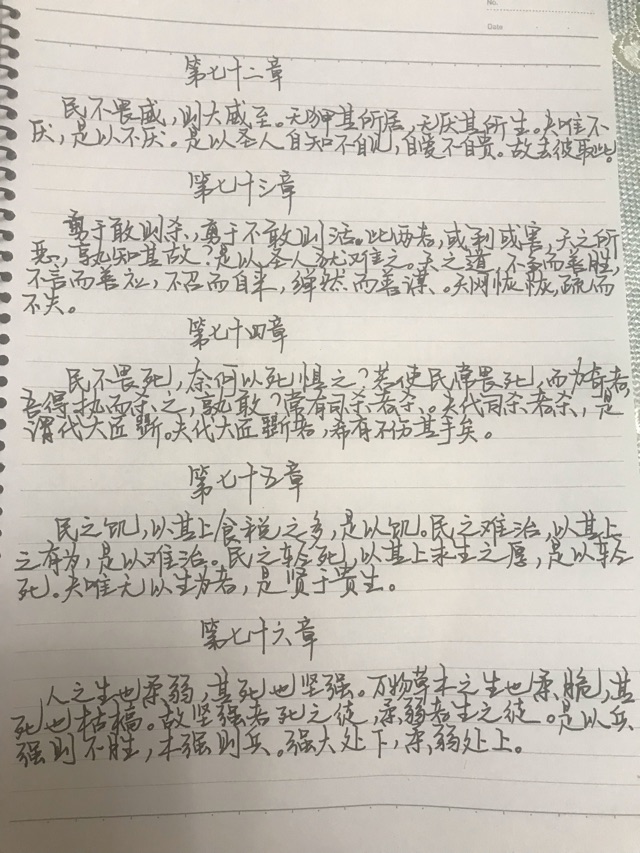 No.
Date
第七十二章
民不畏威，则大威至。无狎其所居，无厌其所生。夫唯不
厌，是以不厌。是以圣人自知不自见，自爱不自贵。故去彼取此。
第七十三章
勇于敢则杀，勇于不敢则活。此两者，或利或害，天之所
恶，孰知其故？是以圣人犹难之。天之道，不争而善胜，
不言而善应，不召而自来，繟然而善谋。天网恢恢，疏而
不失。
第七十四章
民不畏死，奈何以死惧之？若使民常畏死，而为奇者，
吾得执而杀之，孰敢？常有司杀者杀。夫代司杀者杀，是
谓代大匠斲。夫代大匠斲者，希有不伤其手矣。
第七十五章
民之饥，以其上食税之多，是以饥。民之难治，以其上
之有为，是以难治。民之轻死，以其上求生之厚，是以轻
死。夫唯无以生为者，是贤于贵生。
第七十六章
人之生也柔弱，其死也坚强。万物草木之生也柔脆，其
死也枯槁。故坚强者死之徒，柔弱者生之徒。是以兵
强则不胜，木强则兵。强大处下，柔弱处上。